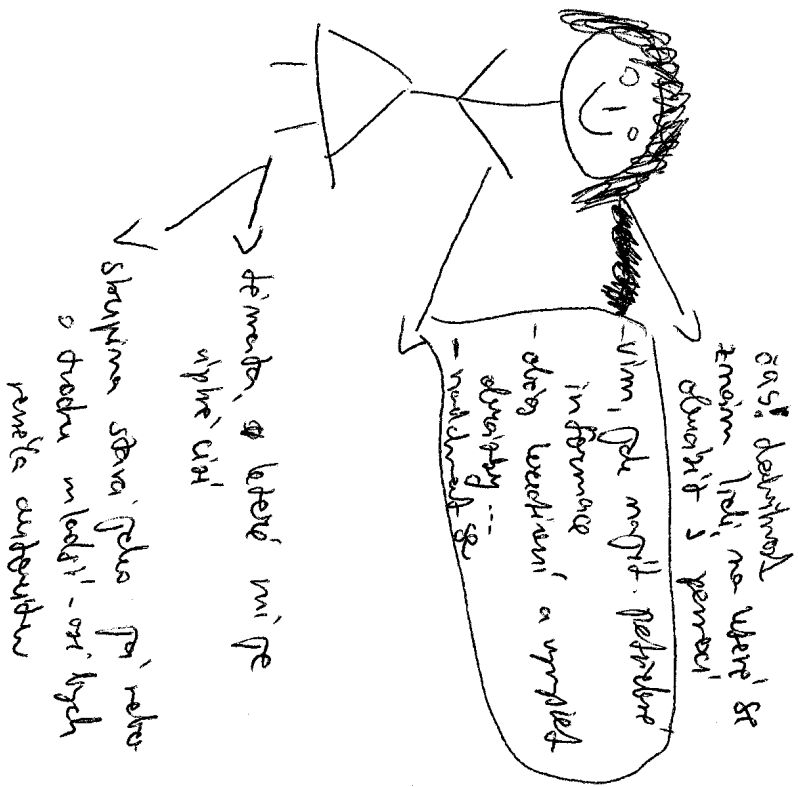 čas!
znám lidi, na které se
obrátit s pomocí
- vím, kde najít potřebné
informace
- kreativní a vymýšlet
obrázky ...
- nadchnout se
témata, o které mi je
úplně cizí
skupina stará jako já nebo
o trochu mladší - asi bych
neměla autoritu